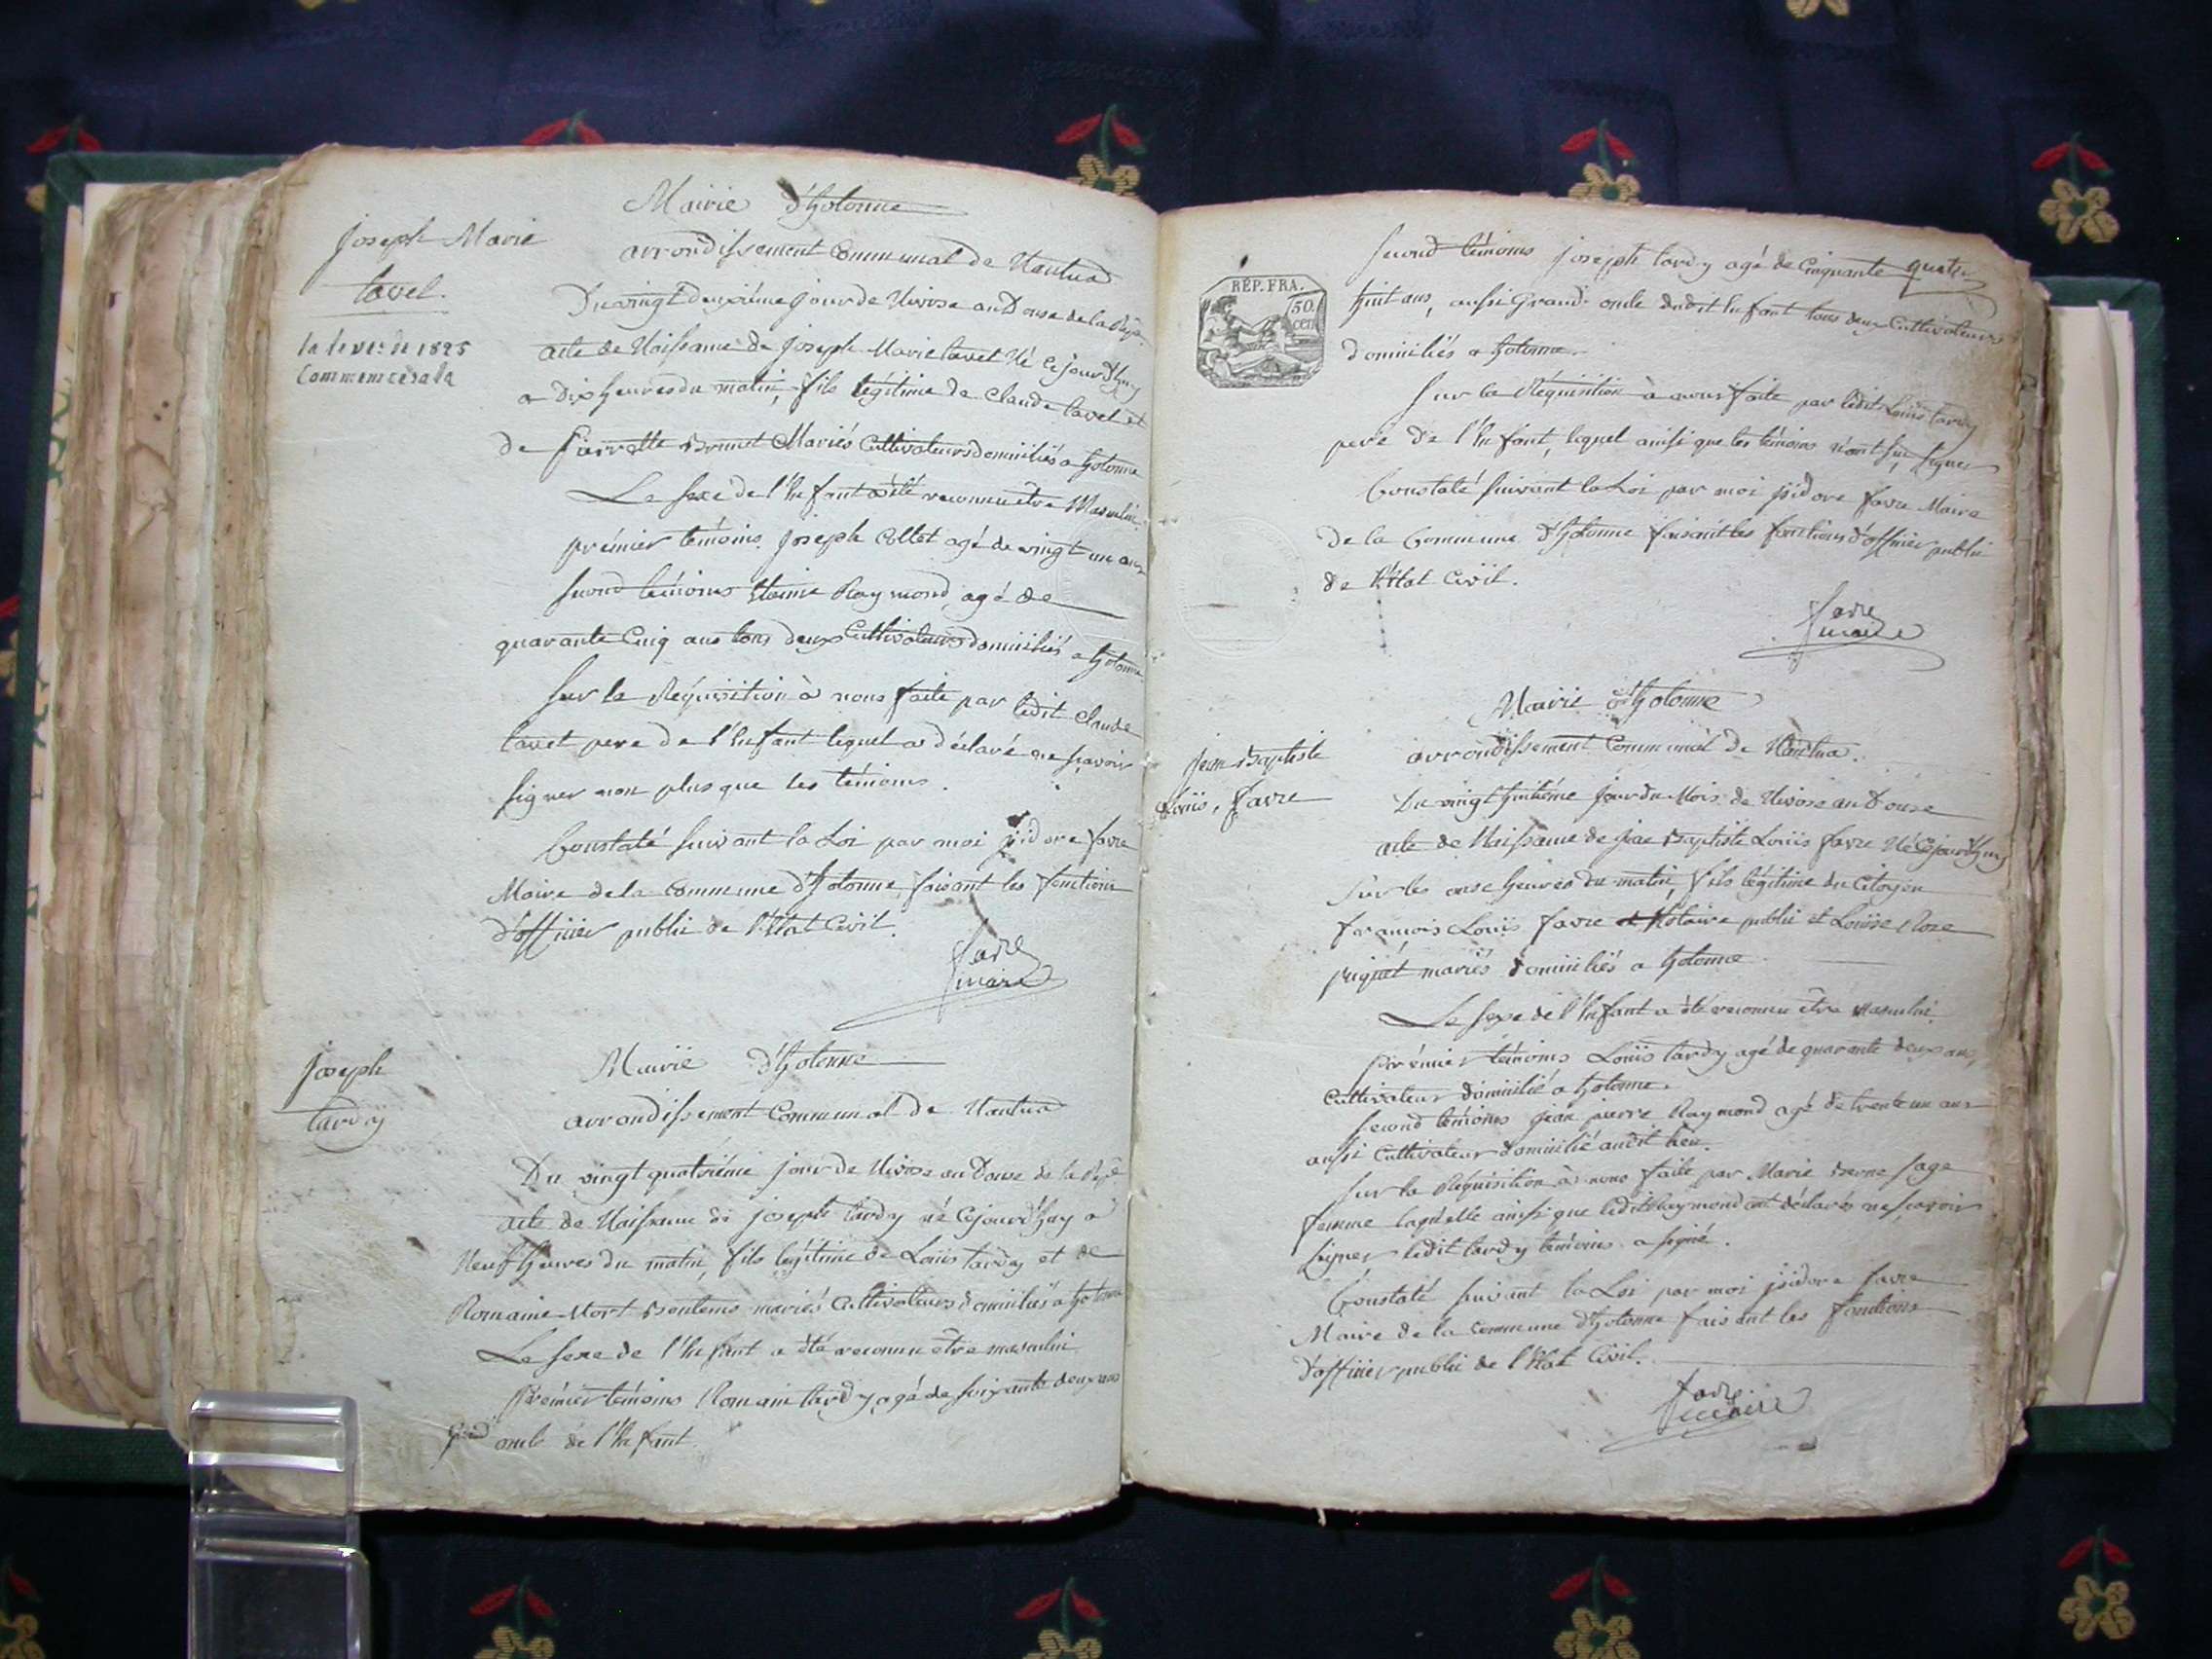 Mairie d'hotonne
arrondissement Communal de Nantua
Joseph Marie
tavel.
la levée de 1825
Commencera la
Du vingt deuxième jour de Nivose an Douse de la Rép.
acte de Naissance de joseph Marie tavel Né Cejourd'huy
a Dix heures du matin, fils légitime de Claude tavel et
de pierrette Mariés Cultivateurs domiciliés a hotonne
Le sexe de l'Enfant a été reconnu être Masculin.
prémier témoins joseph Collet agé de vingt un ans
second témoins Raymond agé de
quarante Cinq ans tous deux Cultivateurs domiciliés a hotonne
Sur la Réquisition à nous faite par ledit Claude
tavel pere de l'Enfant lequel a déclaré ne sçavoir
signer non plus que les témoins.
Constaté suivant la Loi par moi jsidore favre
Maire de la Commune d'hotonne faisant les fonctions
d'officier public de l'Etat Civil.
favre
maire
Joseph
tardy
Mairie d'hotonne
arrondissement Communal de Nantua
Du vingt quatriéme jour de Nivose an Douse de la Rép.
acte de Naissance de joseph tardy né Cejourd'huy a
Neuf heures du matin, fils légitime de Louis tardy et de
Romaine mariés Cultivateurs domiciliés a hotonne
Le sexe de l'Enfant a été reconnu être masculin
Prémier témoins Romain tardy agé de soixante deux ans
grand oncle de l'Enfant.
RÉP. FRA.
50
cen.
second témoins joseph tardy agé de Cinquante quatre
huit ans, aussi Grand oncle dudit Enfant tous deux Cultivateurs
domiciliés a hotonne.
Sur la Réquisition à nous faite par ledit Louis tardy
pere de l'Enfant, lequel ainsi que les témoins n'ont sçu signer
Constaté suivant la Loi par moi jsidore favre Maire
de la Commune d'hotonne faisant les fonctions d'officier public
de l'Etat Civil.
favre
maire
Mairie d'hotonne
arrondissement Communal de Nantua.
jean Baptiste
Louis, favre
Du vingt huitiéme jour du Mois de Nivose an Douse
acte de Naissance de jean Baptiste Louis favre Né Cejourd'huy
Sur les onse heures du matin, fils légitime du Citoyen
francois Louis favre Notaire public et Louise Rose
mariés domiciliés a hotonne
Le sexe de l'Enfant a été reconnu être masculin.
Prémier témoins Louis tardy agé de quarante deux ans,
Cultivateur domicilié a hotonne.
second témoins jean pierre Raymond agé de trente un ans
aussi Cultivateur domicilié audit lieu.
Sur la Réquisition à nous faite par Marie sage
femme laquelle ainsi que ledit Raymond ont déclarés ne sçavoir
signer, ledit tardy témoins a signé.
Constaté suivant la Loi par moi jsidore favre
Maire de la Commune d'hotonne faisant les fonctions
d'officier public de l'Etat Civil.
favre
maire